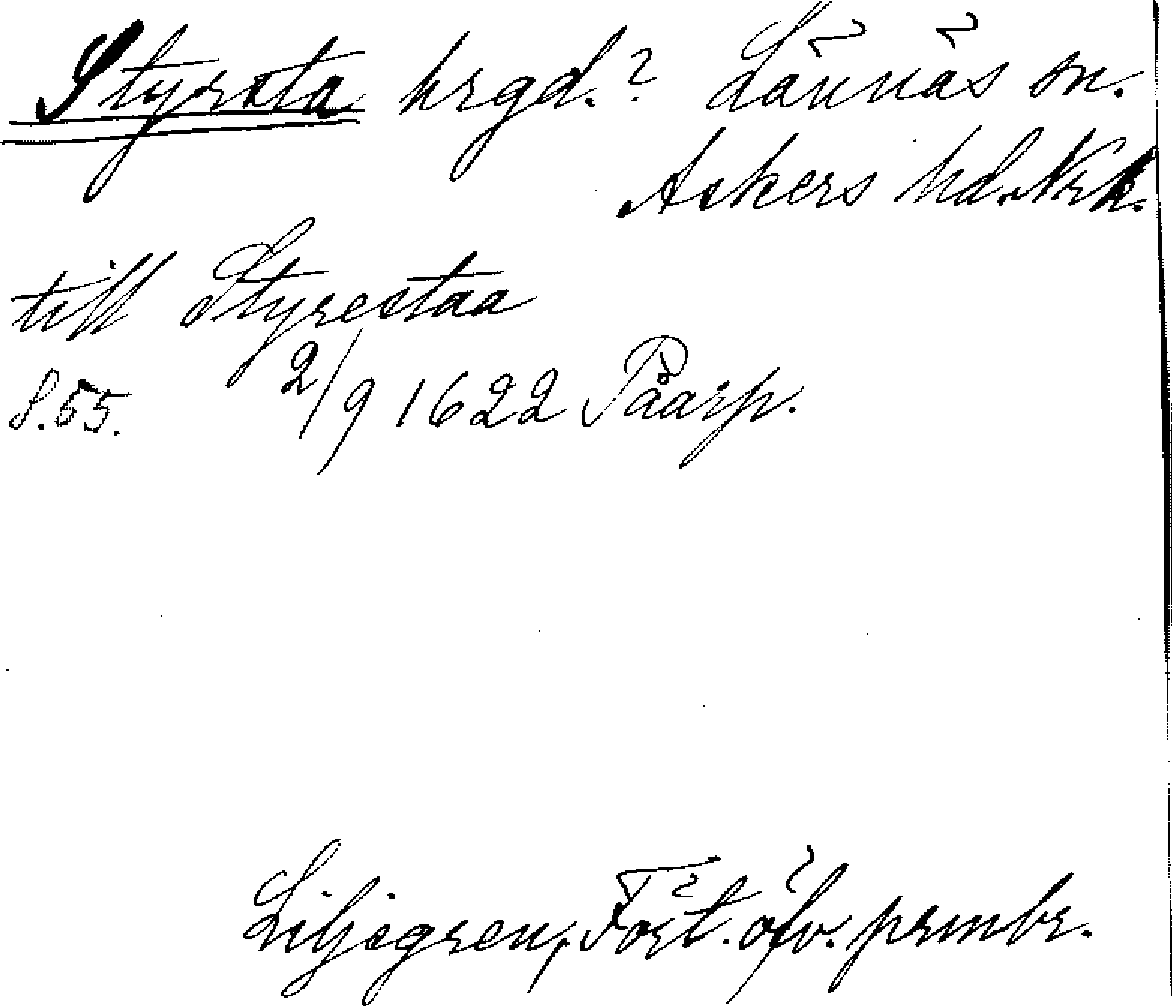 Styrsta hrgd.? Lännäs sn.
Askers hd. Nrk.
till Styrestaa
s. 55. 2/9 1622 Påarp.
Liljegren, Fört. öfv. prmbr.